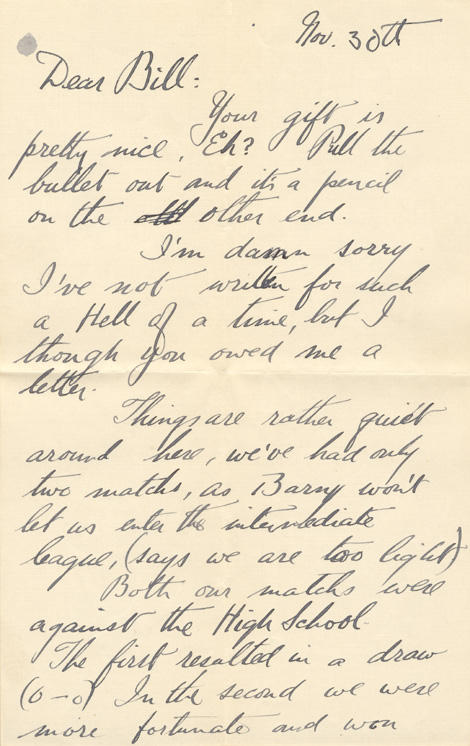 Nov. 30th
Dear Bill:
Your gift is
pretty nice, Eh? Pull the
bullet out and its a pencil
on the other end.
I'm damn sorry
I've not written for such
a Hell of a time, but I
though you owed me a
letter.
Things are rather quiet
around here, we've had only
two matchs, as Barny won't
let us enter the intermediate
league, (says we are too light)
Both our matchs were
against the High School
The first resulted in a draw
(0-0) In the second we were
more fortunate and won